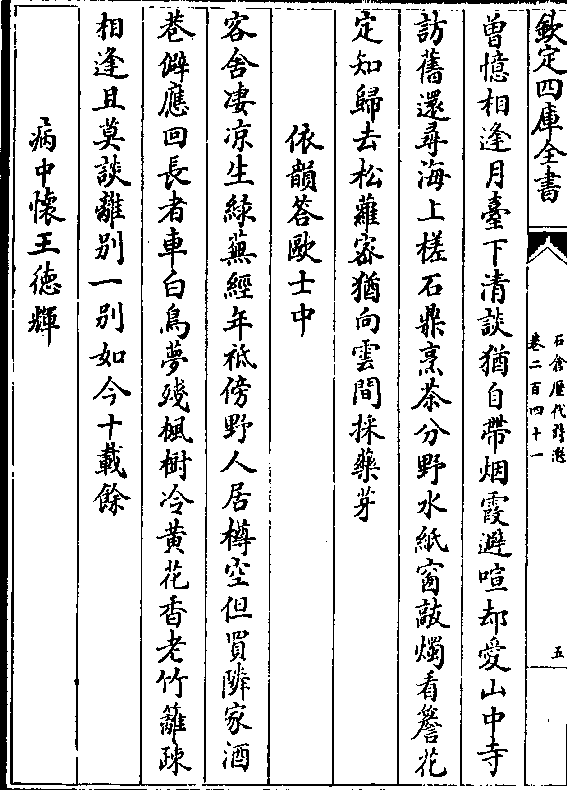 欽定四庫全書
石倉歷代詩選
卷二百四十一
五
曽憶相逢月臺下清談猶自帶烟霞避喧却愛山中寺
訪舊還尋海上槎石鼎烹茶分野水紙窗敲燭看簷花
定知歸去松蘿密猶向雲間採藥芽
依韻答歐士中
客舍凄凉生綠蕪經年祗傍野人居樽空但買隣家酒
巷僻應回長者車白鳥夢殘楓樹冷黄花香老竹籬疎
相逢且莫談離别一别如今十載餘
病中懷王德輝